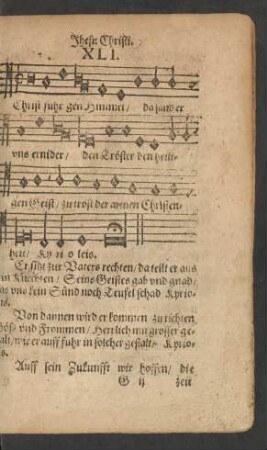 Jhesu Christi.
XLI.
Christ fuhr gen Himmel / da sand er
vns ernider / den Tröster den heili-
gen Geist / zu trost der armen Christen-
heit / Ky ri o leis.
Er sitzt zur Vaters rechten / da teilt er aus
in Knechten / Seins Geistes gab vnd gnad /
as vns kein Sünd noch Teufel schad Kyrio-
Von dannen wird er kommen zurichten
bös- vnd Frommen / Herrlich mit grosser ge-
alt / wie er auff fuhr in solcher gestalt / Kyrio-
s.
Auff sein Zukunfft wir hoffen / die
G ij zeit